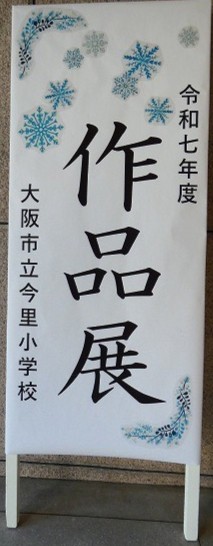 令和七年度
作品展
大阪市立今里小学校